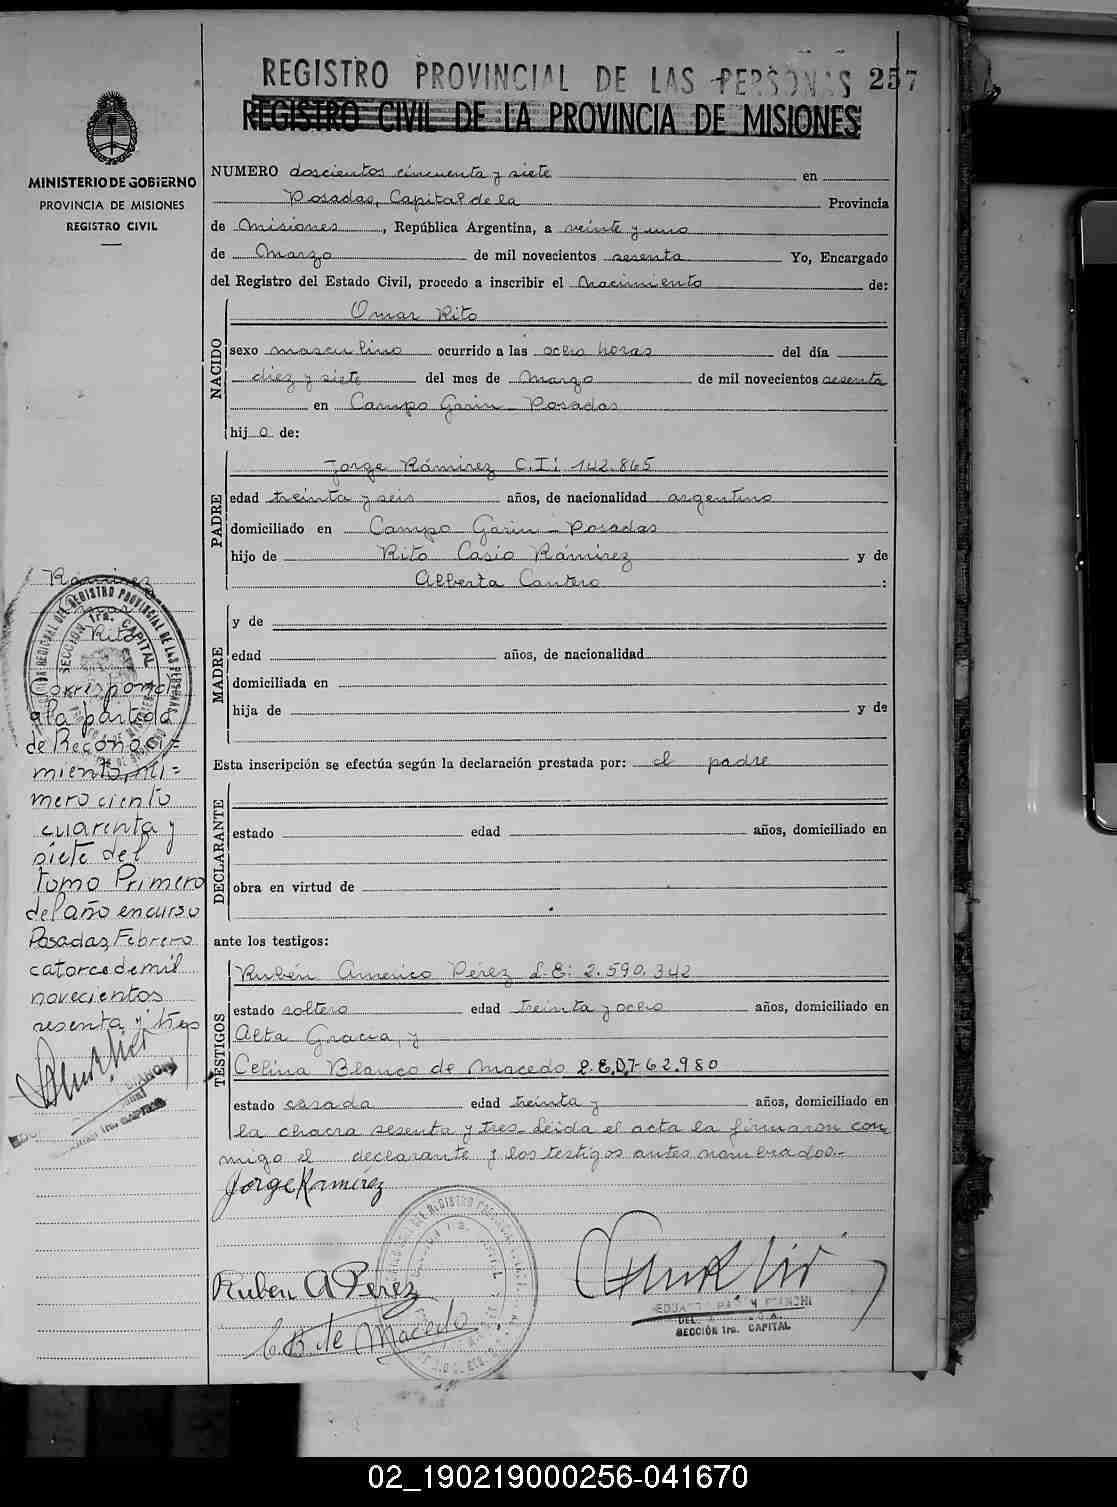 REGISTRO PROVINCIAL DE LAS PERSONAS 257
REGISTRO CIVIL DE LA PROVINCIA DE MISIONES
MINISTERIO DE GOBIERNO
PROVINCIA DE MISIONES
REGISTRO CIVIL
NUMERO doscientos cincuenta y siete en
Posadas, Capital de la Provincia
de Misiones, República Argentina, a veinte y uno
de Marzo de mil novecientos sesenta Yo, Encargado
del Registro del Estado Civil, procedo a inscribir el Nacimiento de:
NACIDO
Omar Rito
sexo masculino ocurrido a las ocho horas del día
diez y siete del mes de Marzo de mil novecientos sesenta
en Campo Garin - Posadas
hijo de:
PADRE
Jorge Rámirez C.I: 142.865
edad treinta y seis años, de nacionalidad argentino
domiciliado en Campo Garin - Posadas
hijo de Rito Casio Rámirez y de
Alberta Cantero :
MADRE
y de
edad años, de nacionalidad
domiciliada en
hija de y de
Esta inscripción se efectúa según la declaración prestada por: el padre
DECLARANTE
estado edad años, domiciliado en
obra en virtud de
ante los testigos:
TESTIGOS
Rubén Americo Pérez L.E: 2.590.342
estado soltero edad treinta y ocho años, domiciliado en
Alta Gracia, y
Celina Blanco de Macedo
estado casada edad treinta y años, domiciliado en
la chacra sesenta y tres. Leida el acta la firmaron con
migo el declarante y los testigos antes nombrados.-
Jorge Ramírez
Ruben A Perez
C B de Macedo
SECCIÓN 1ra. CAPITAL
Rámirez
Omar
Rito
Corresponde
a la partida
de Reconoci=
miento, nú=
mero ciento
cuarenta y
siete del
tomo Primero
del año en curso
Posadas, Febrero
catorce de mil
novecientos
sesenta y tres
SECCION 1ra. CAPITAL
02_190219000256-041670